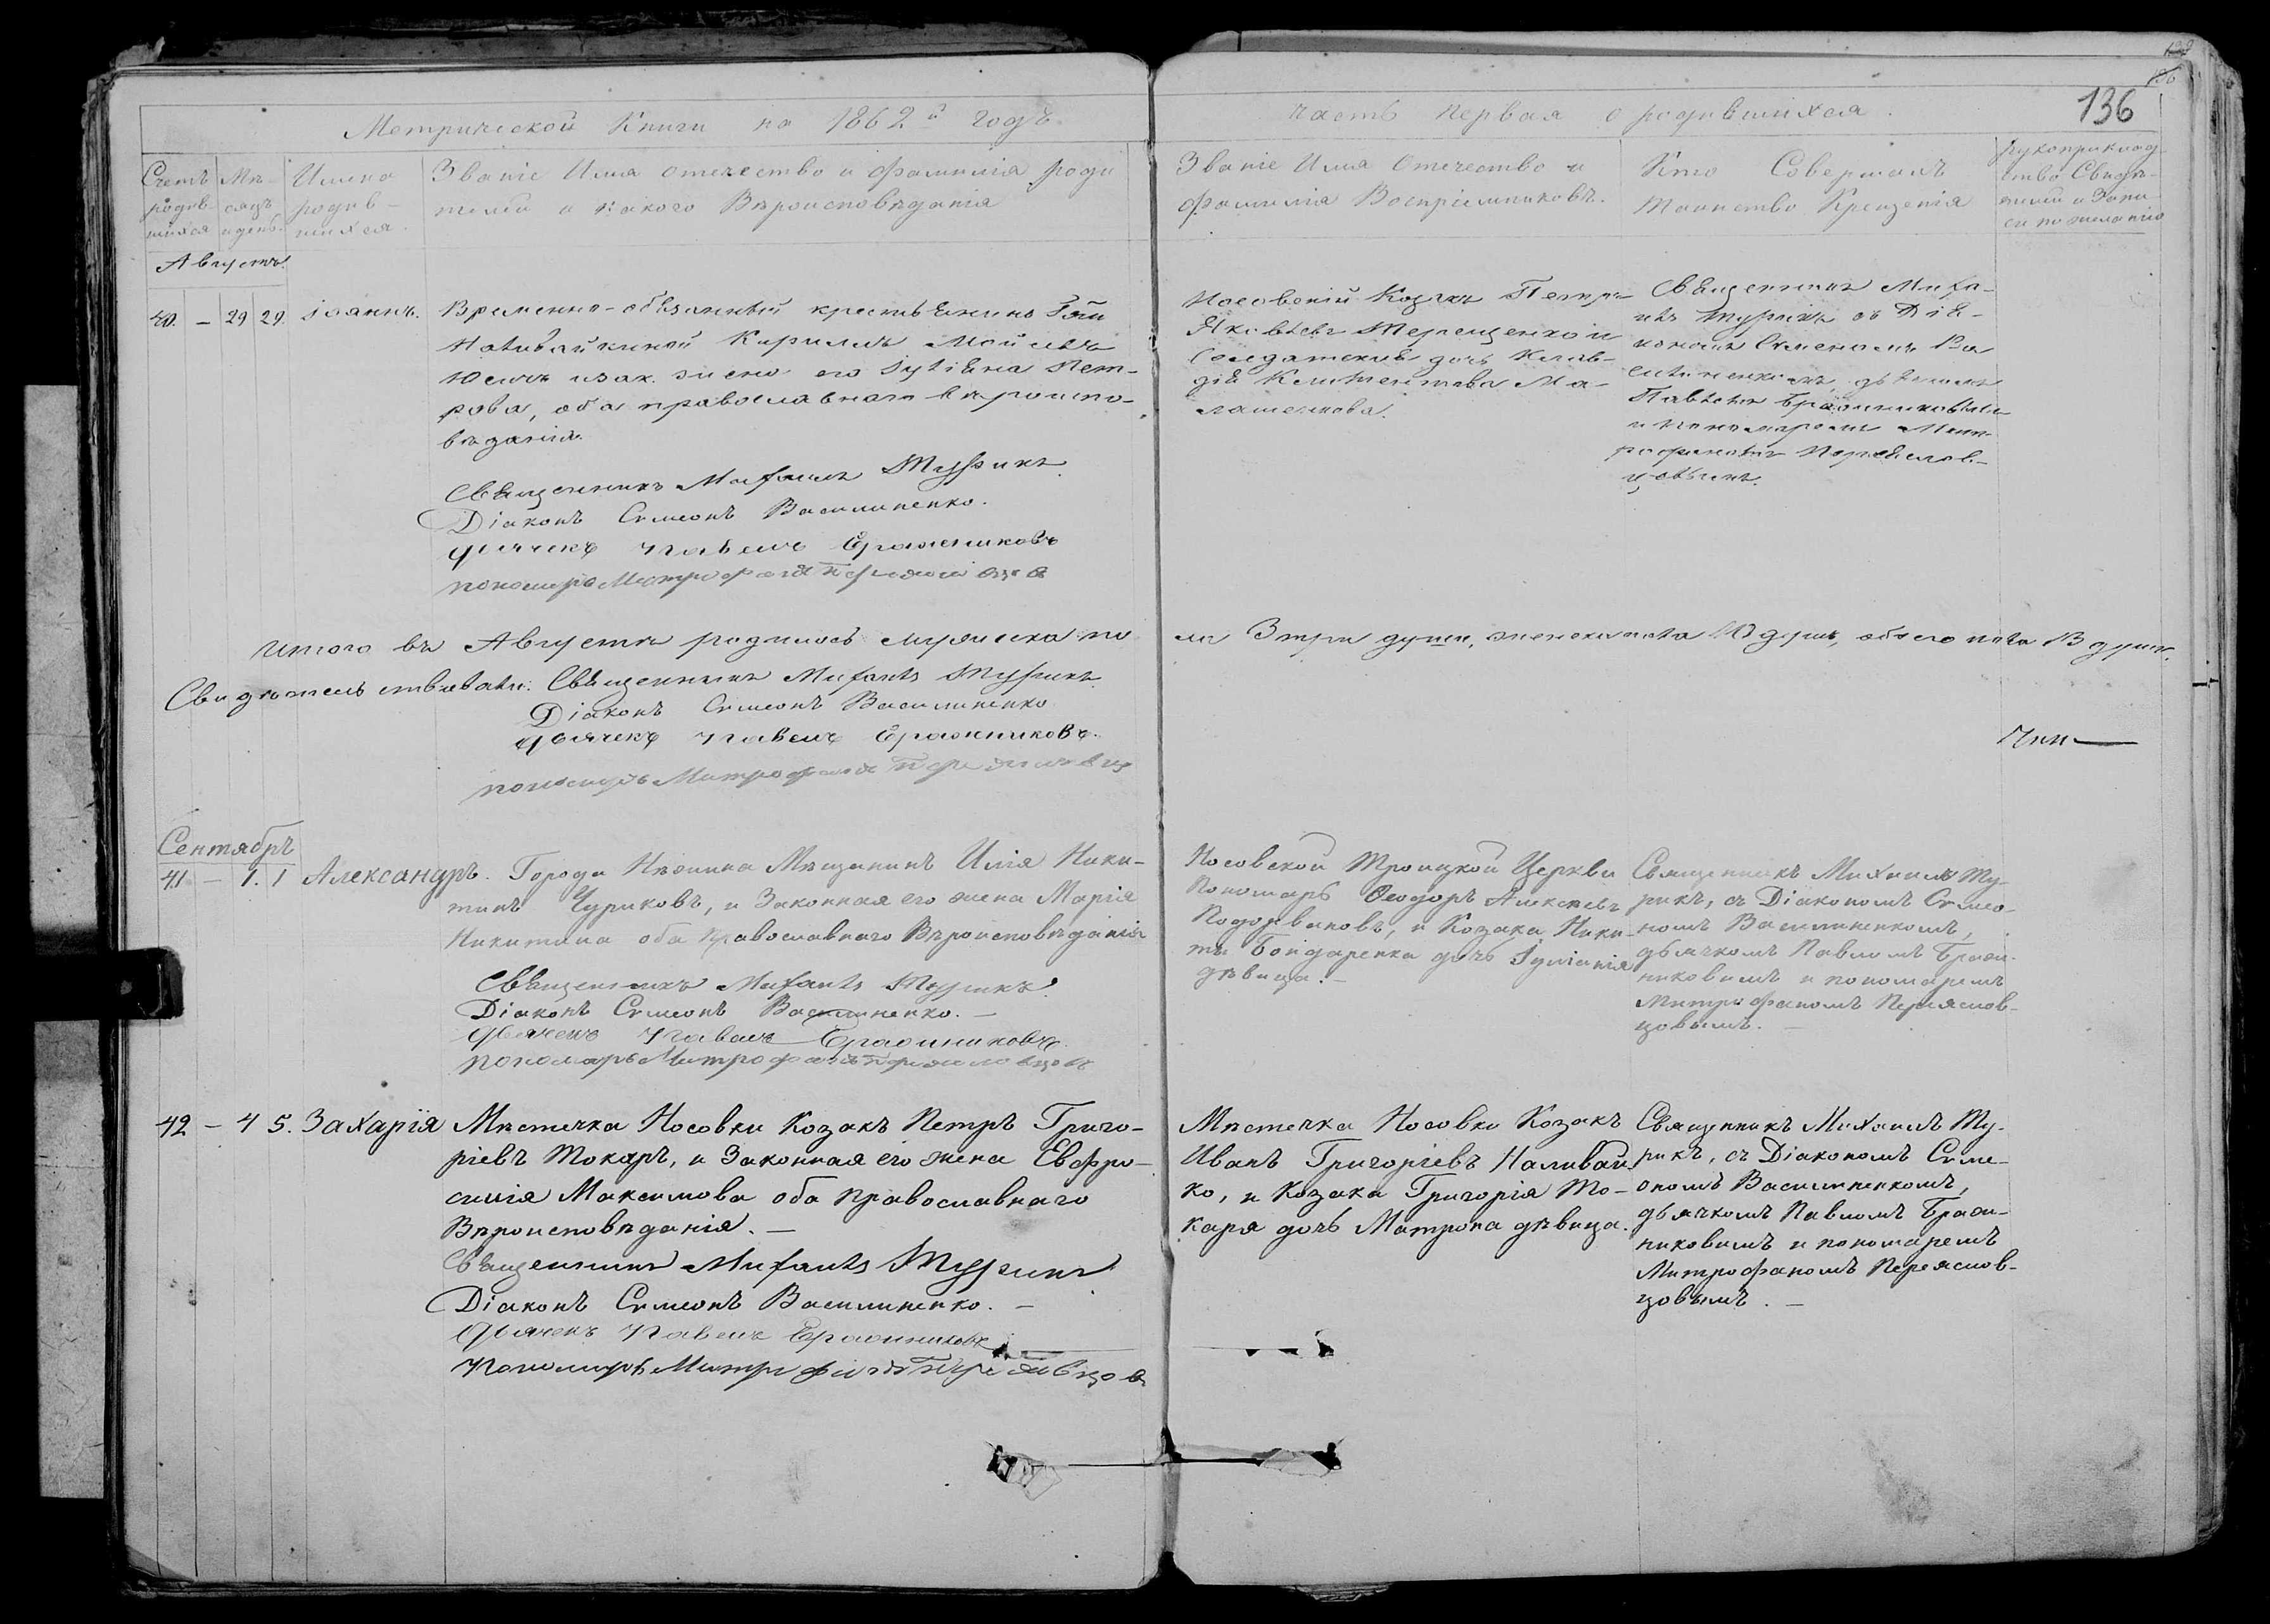 Метрической Книги на 1862й годъ
часть первая о родившихся.
136
Счетъ родив-шихся
Мѣ-сяцъ и день
Имена родив-шихся.
Званіе Имя отчество и фамилія роди
телей и какого Вѣроисповѣданія
Званіе Имя Отечество и
фамилія Воспріемниковъ.
Кто Совершалъ
Таинство Крещенія
рукоприклад-
ство Свидѣ-
телей о Запи-
си по желанію
Августъ.
40. – 29 29. Іоаннъ.
Временно-обязанный крестьянинъ
Кирилъ
и зак. жена его Іуліана Пет-
рова, оба православнаго вѣроиспо-
вѣданія.
Священникъ Михаилъ Турикъ
Діаконъ Симеонъ Василиненко.
Дьячекъ Павелъ Бражниковъ
пономарь Митрофанъ Переяславцовъ
Носовскій Козакъ Петръ
Яковлевъ Терещенко и
Солдатская дочь Клав-
дія
Священникъ Миха-
илъ Турикъ съ Діа-
кономъ Симеономъ Ва
силиненкомъ, дьячкомъ
Павломъ Бражниковымъ
и пономаремъ Мит-
рофаномъ Переяслов-
цовымъ.
Итого въ Августѣ родилось мужеска по
ла 3 три души, женска пола 10 душъ, обоего пола 13 душъ.
Свидѣтельствовали: Священникъ Михаилъ Турикъ
Діаконъ Симеонъ Василиненко
Дьячекъ Павелъ Бражниковъ.
пономарь Митрофанъ Переясловцовъ
Сентябрь
41 – 1. 1 Александръ.
Города Нѣжина Мѣщанинъ Илія Ники-
тинъ Чуриковъ, и Законная его жена Марія
Никитина оба Православнаго Вѣроисповѣданія
Священникъ Михаилъ Турикъ.
Діаконъ Симеонъ Василиненко. –
Дьячекъ Павелъ Бражниковъ.
пономарь Митрофанъ Переясловцовъ
Носовской Троицкой Церкви
Пономарь Ѳеодоръ Алексѣевъ
и Козака Ники-
ты Бондаренка дочь Іуліанія
дѣвица. –
Священникъ Михаилъ Ту-
рикъ, съ Діакономъ Симео-
номъ Василиненкомъ,
дьячкомъ Павломъ Браж-
никовымъ и пономаремъ
Митрофаномъ Переяслов-
цовымъ. –
42 – 4 5. Захарія
Мѣстечка Носовки Козакъ Петръ Григо-
ріевъ Токарь, и Законная его жена Евфро-
синія Максимова оба Православнаго
Вѣроисповѣданія. –
Священникъ Михаилъ Турикъ
Діаконъ Симеонъ Василиненко. –
Дьячекъ Павелъ Бражниковъ
Пономарь Митрофанъ Переясловцовъ
Мѣстечка Носовки Козакъ
Иванъ Григоріевъ Наливай
ко, и Козака Григорія То-
каря дочь Матрона дѣвица.
Священникъ Михаилъ Ту-
рикъ, съ Діакономъ Симе-
ономъ Василиненкомъ,
дьячкомъ Павломъ Браж-
никовымъ и пономаремъ
Митрофаномъ Переяслов-
цовымъ. –